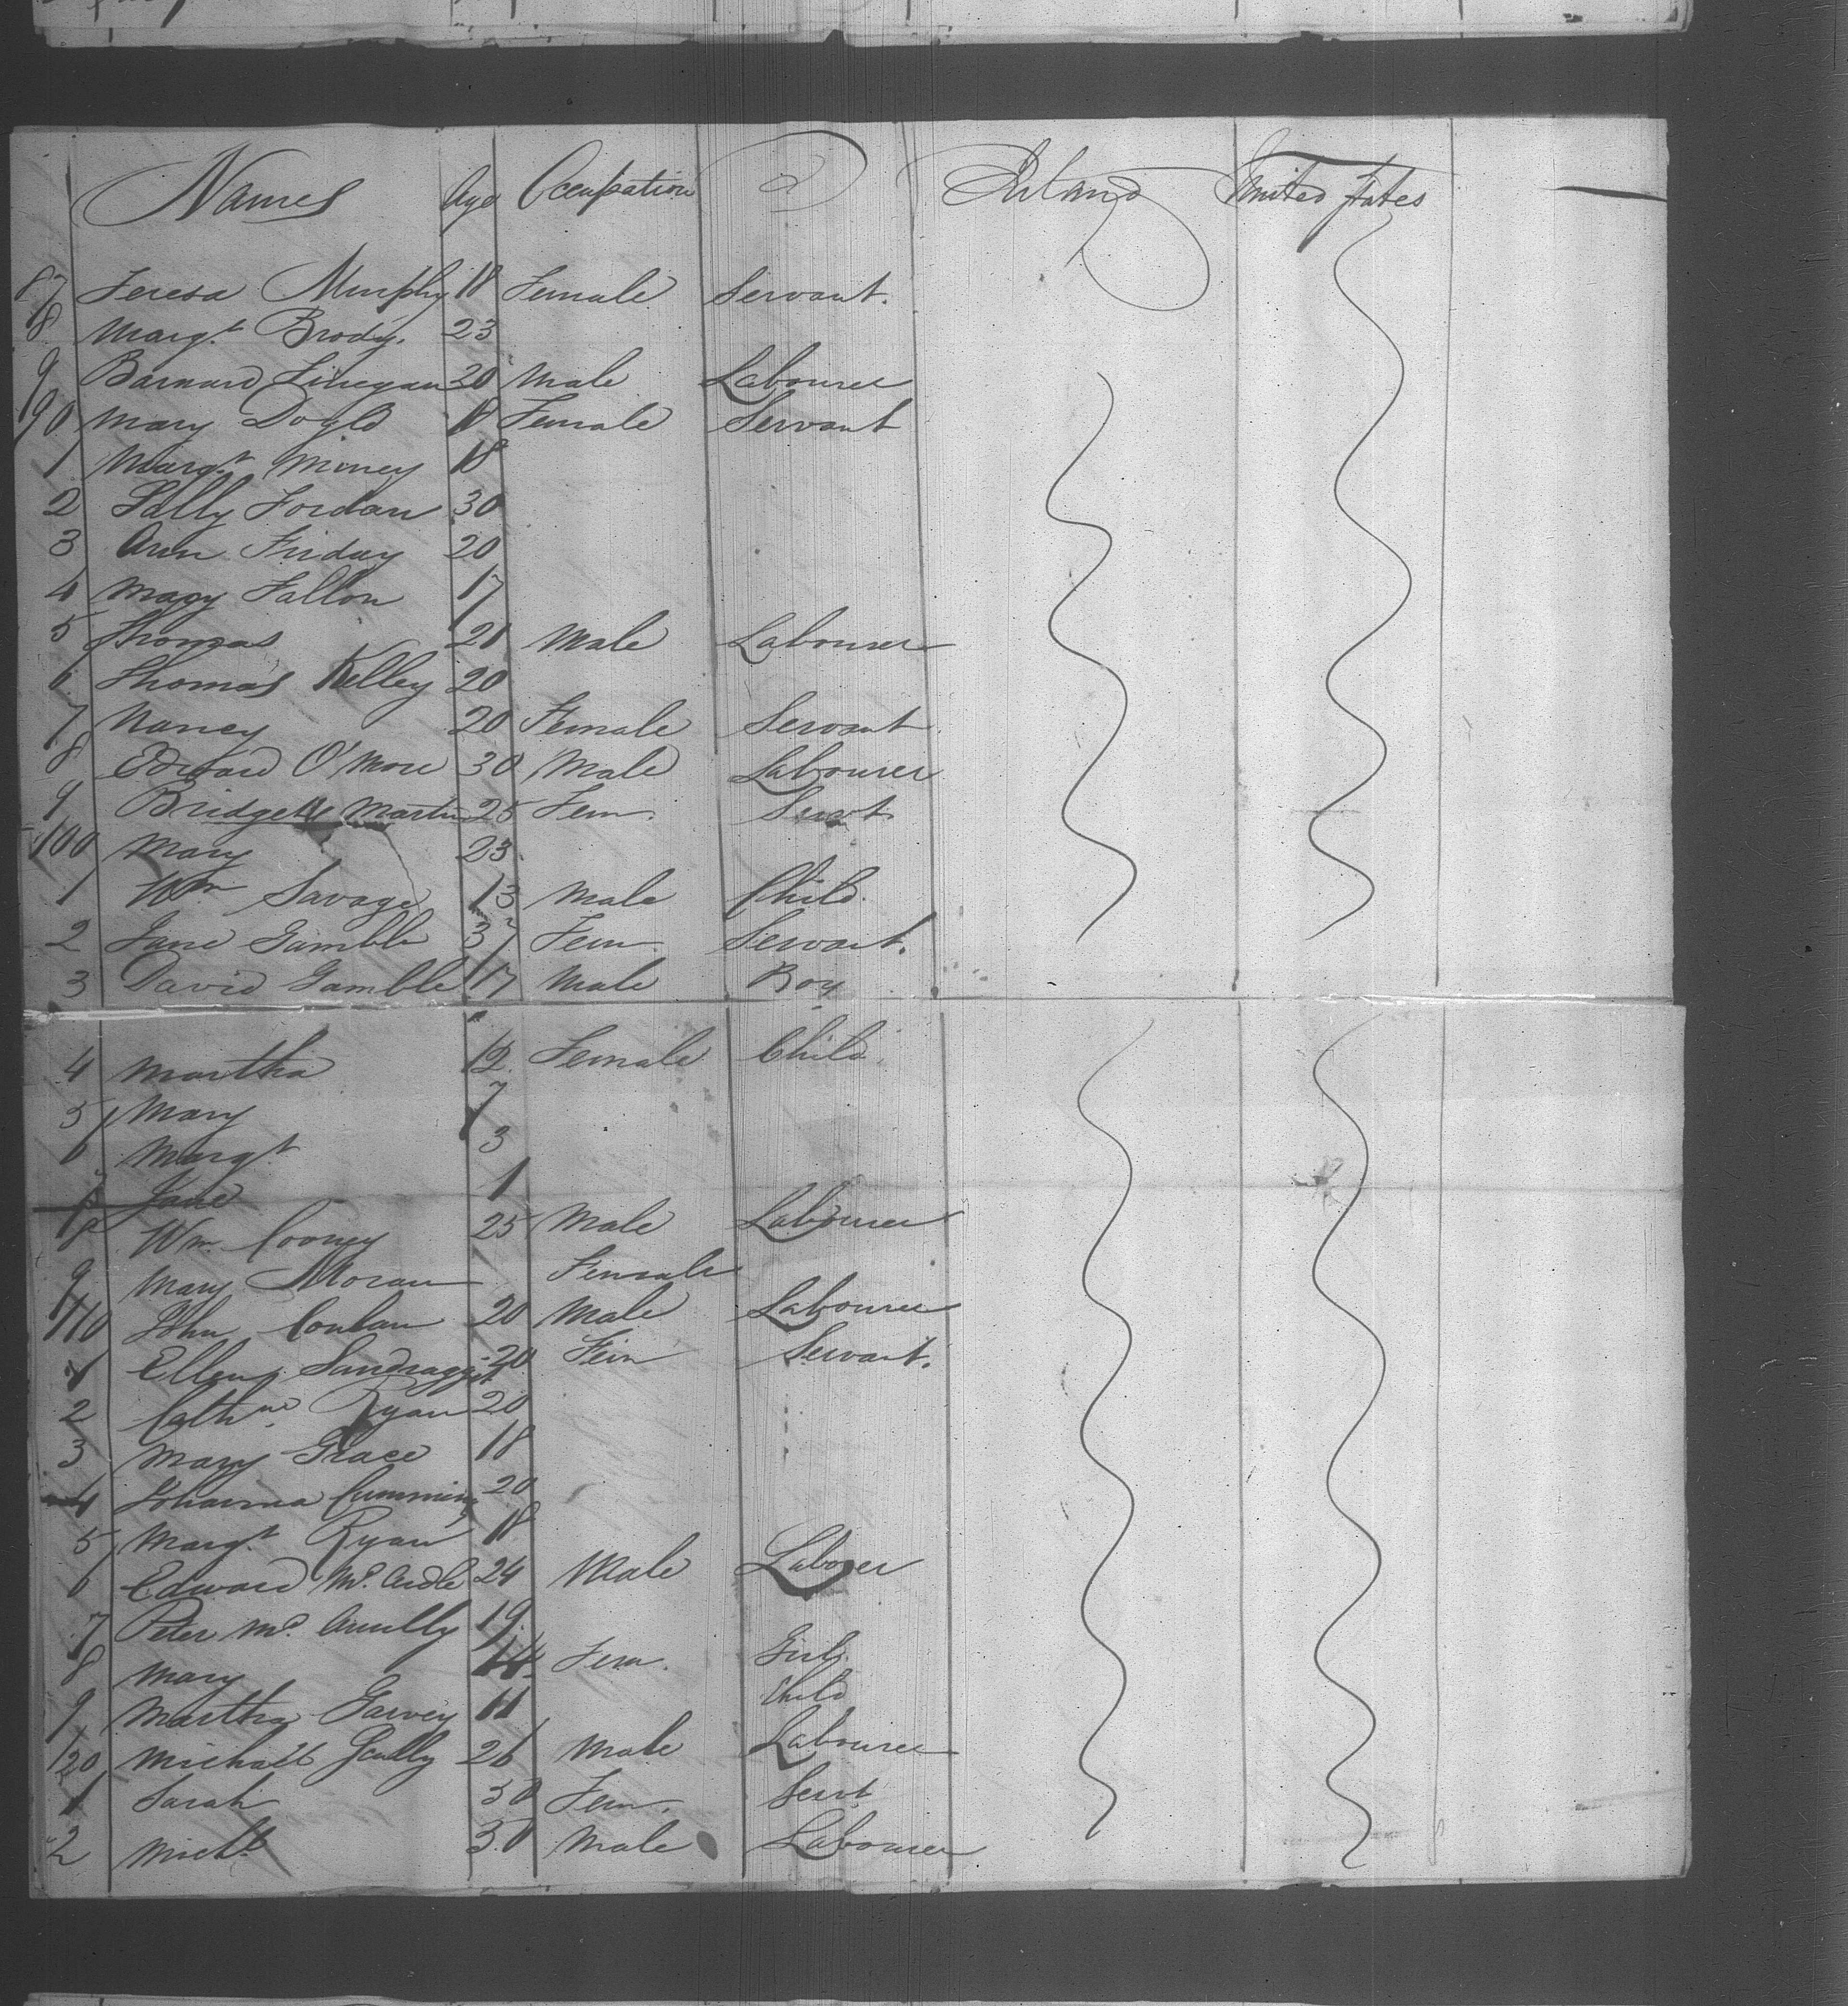 Names Age Occupation Ireland United States
87 Teresa Murphy 18 Female Servant.
8 Margt. Brody. 23
9 Barnard Finegan 20 Male Labourer
90 Mary Doyle 18 Female Servant
1 Margt. 18
2 Sally Jordan 30
3 Ann Friday 20
4 Mary Fallon 17
5 Thomas 21 Male Labourer
6 Thomas Kelley 20
7 Nancy 20 Female Servant
8 Edward O'More 30 Male Labourer
9 Bridgett Martin 25 Fem. Servt
100 Mary 23
1 Wm Savage 13 Male Child.
2 Jane Gamble 37 Fem. Servant.
3 David Gamble 17 Male Boy
4 Martha 12. Female Child.
5 Mary 7
6 Margt 3
7 Jane 1
8 Wm. Cooney 25 Male Labourer
9 Mary Moran Female
110 John Conlan 20 Male Labourer
1 Ellen 20 Fem Servant.
2 Cathne Ryan 20
3 Mary Grace 18
4 Johanna Cumming 20
5 Margt. Ryan 18
6 Edward Mc. Ardle 24 Male Laborer
7 Peter Mc. 19.
8 Mary 14 Fem. Girl.
9 Martha Garvey 11 Child
120 Michall Scully 26 Male Labourer
1 Sarah 30 Fem. Servt
2 Michl. 30 Male Labourer